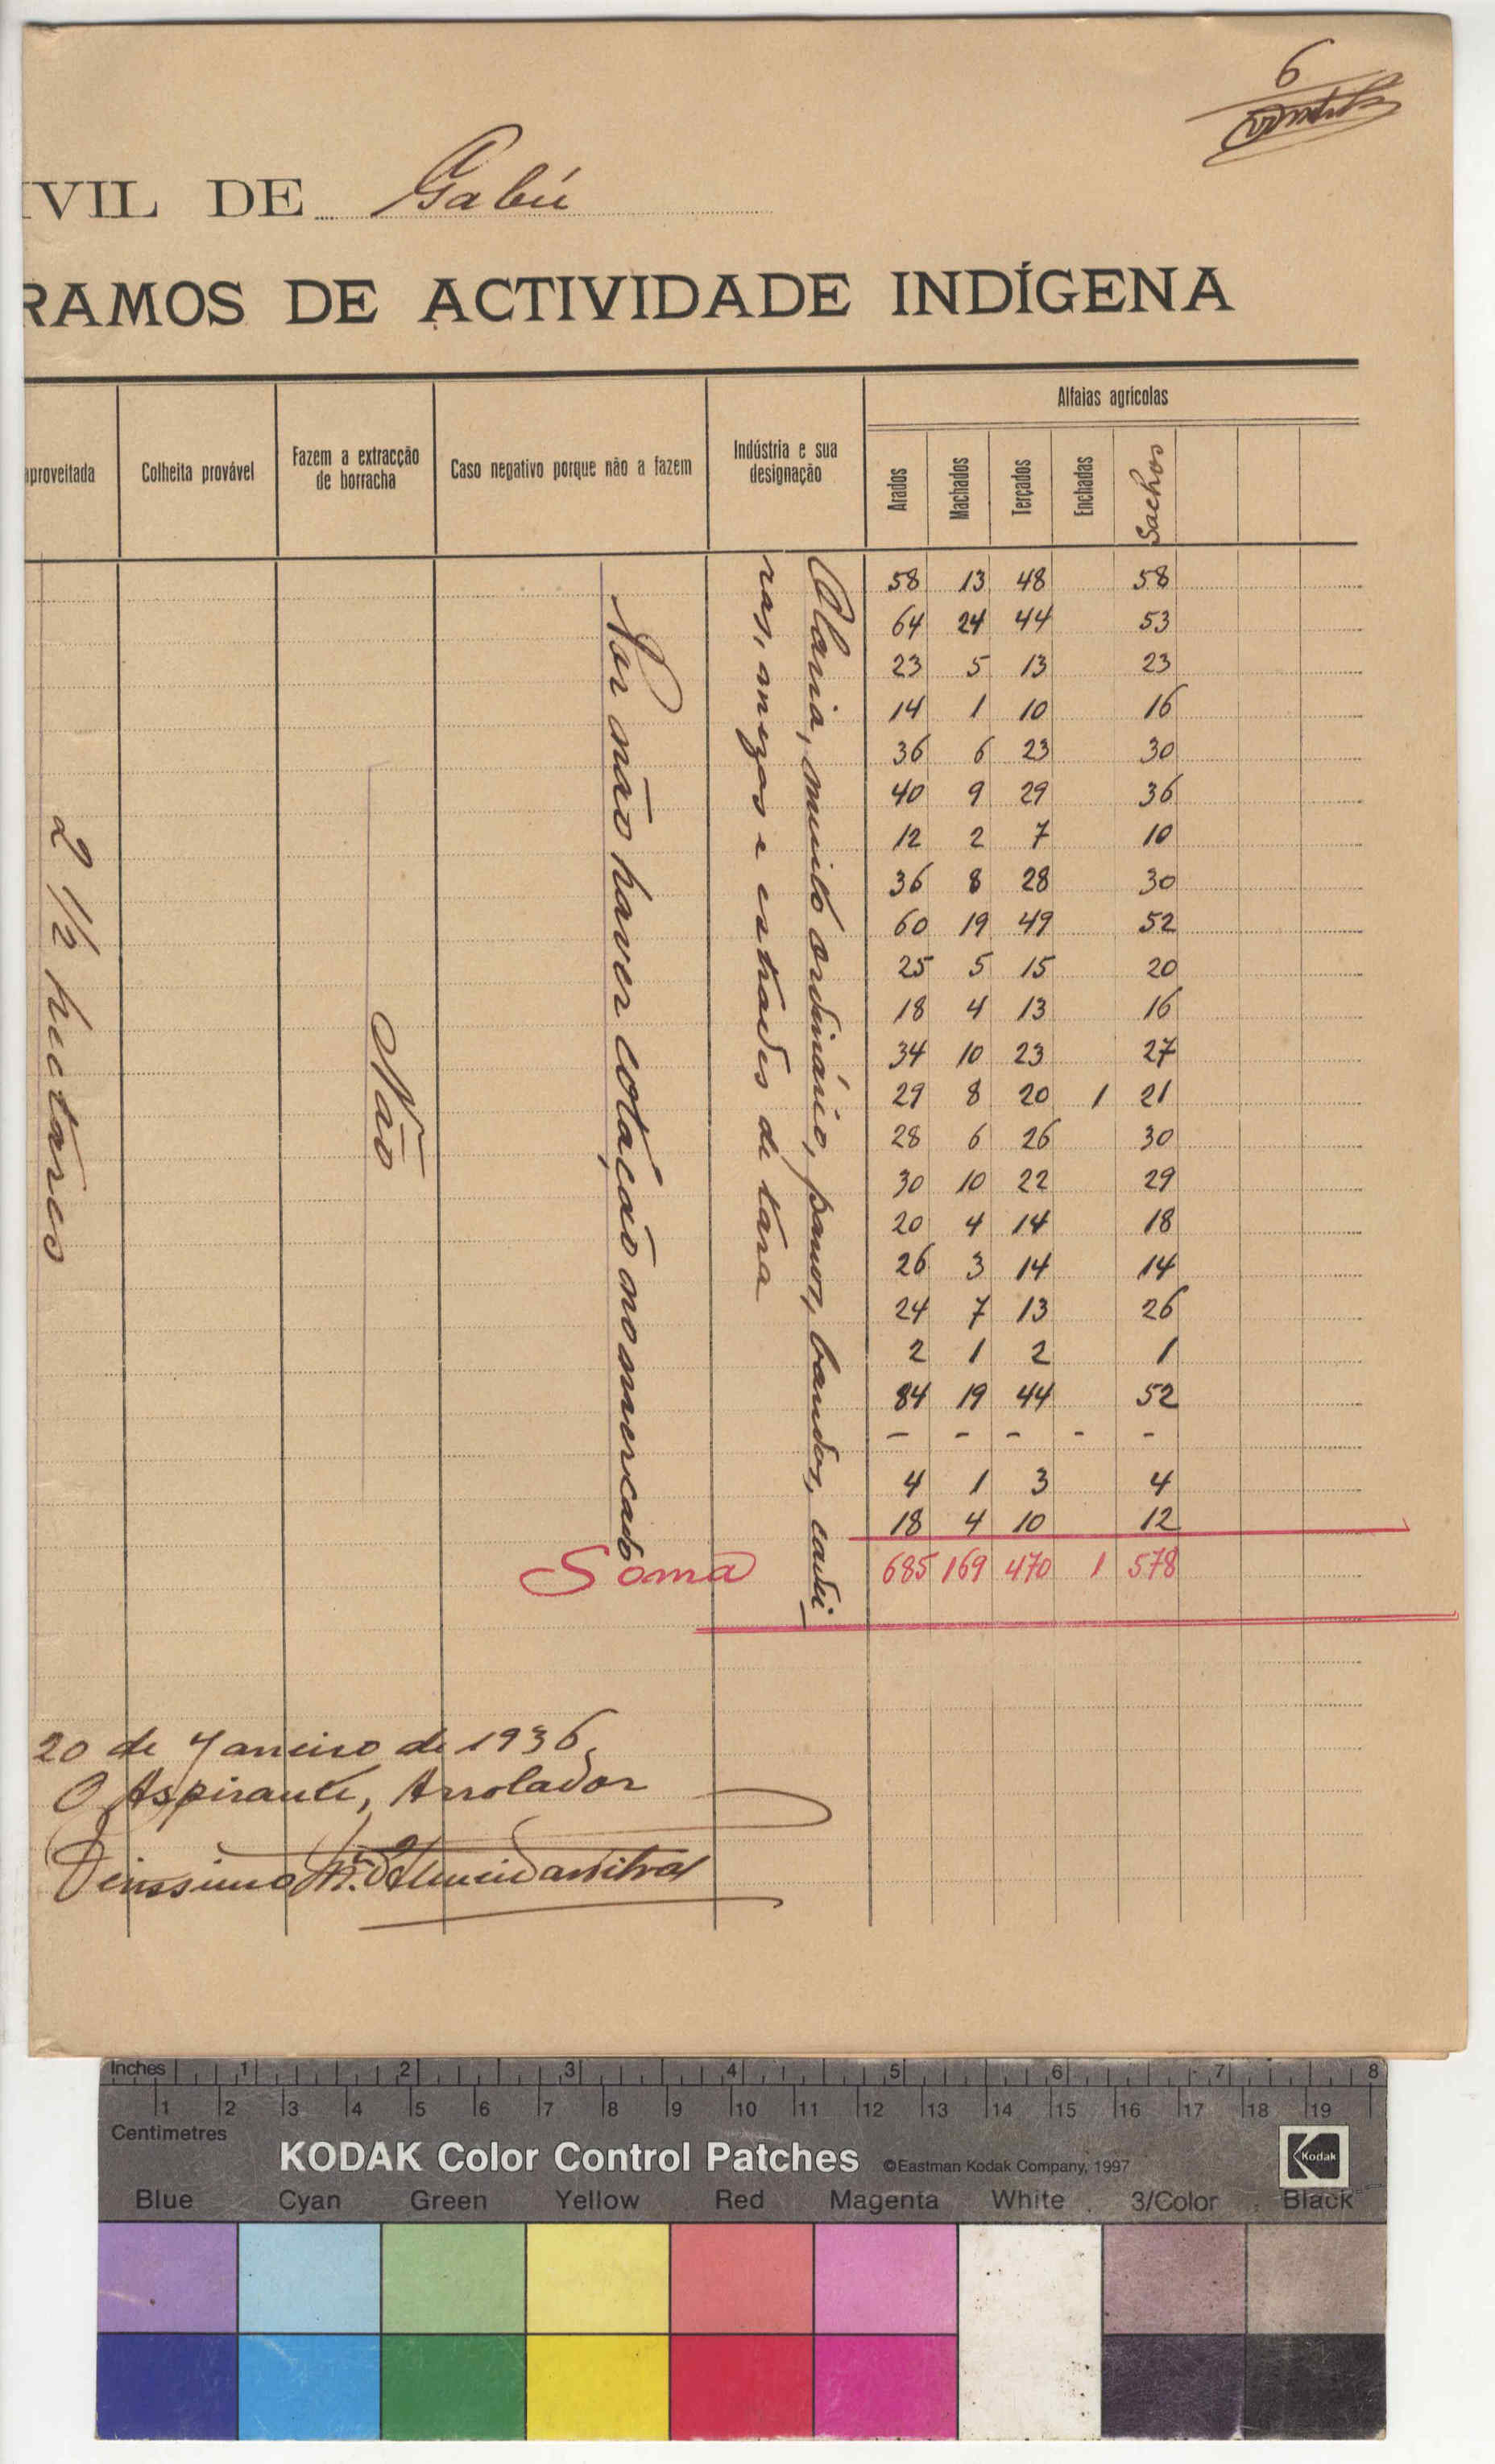 6
IVIL DE Gabú
RAMOS DE ACTIVIDADE INDÍGENA
aproveitada
Colheita provável
Fazem a extracção
de borracha
Caso negativo porque não a fazem
Indústria e sua
designação
Alfaias agrícolas
Arados Machados Terçados Enchadas Sachos
2 1/2 hectares
Não
Por não haver cotação no mercado
Olaria, muito ordinário, panos, bandas, cadei-
ras, anizos e entrades de tara
58 13 48 58
64 24 44 53
23 5 13 23
14 1 10 16
36 6 23 30
40 9 29 36
12 2 7 10
36 8 28 30
60 19 49 52
25 5 15 20
18 4 13 16
34 10 23 27
29 8 20 1 21
28 6 26 30
30 10 22 29
20 4 14 18
26 3 14 14
24 7 13 26
2 1 2 1
84 19 44 52
- - - - -
4 1 3 4
18 4 10 12
Soma 685 169 470 1 578
20 de Janeiro de 1936,
O Aspirante, Arrolador
Inches 1 2 3 4 5 6 7 8
1 2 3 4 5 6 7 8 9 10 11 12 13 14 15 16 17 18 19
Centimetres
KODAK Color Control Patches ©Eastman Kodak Company, 1997 Kodak
Blue Cyan Green Yellow Red Magenta White 3/Color Black